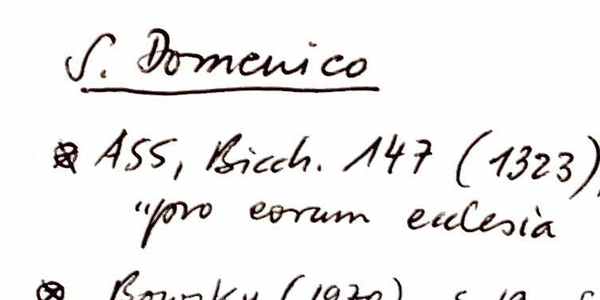 S. Domenico
ASS, Bicch. 147 (1323),
"pro eorum ecclesia
Bowsky (1970)